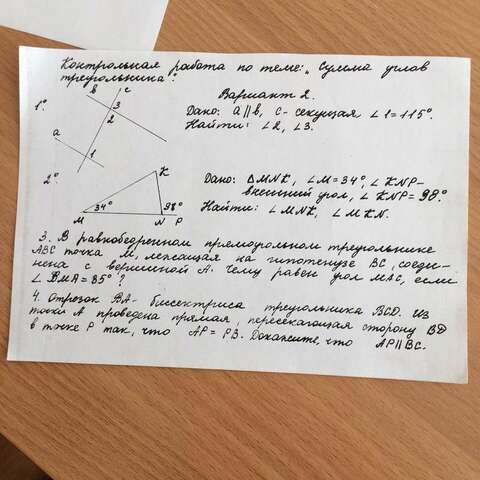 Контрольная работа по теме: „Сумма углов
треугольника".
Вариант 2.
1°.
b
c
3
2
a
1
Дано: a∥b, c- секущая ∠1=115°.
Найти: ∠2, ∠3.
2°
K
34°
98°
M
N
P
Дано: △MNK, ∠M=34°, ∠KNP-
внешний угол, ∠KNP=98°.
Найти: ∠MNK, ∠MKN.
3. В равнобедренном прямоугольном треугольнике
ABC точка M, лежащая на гипотенузе BC, соеди-
нена с вершиной A. Чему равен угол MAC, если
∠BMA=85°?
4. Отрезок BA- биссектриса треугольника BCD. Из
точки A проведена прямая, пересекающая сторону BD
в точке P так, что AP=PB. Докажите, что AP∥BC.